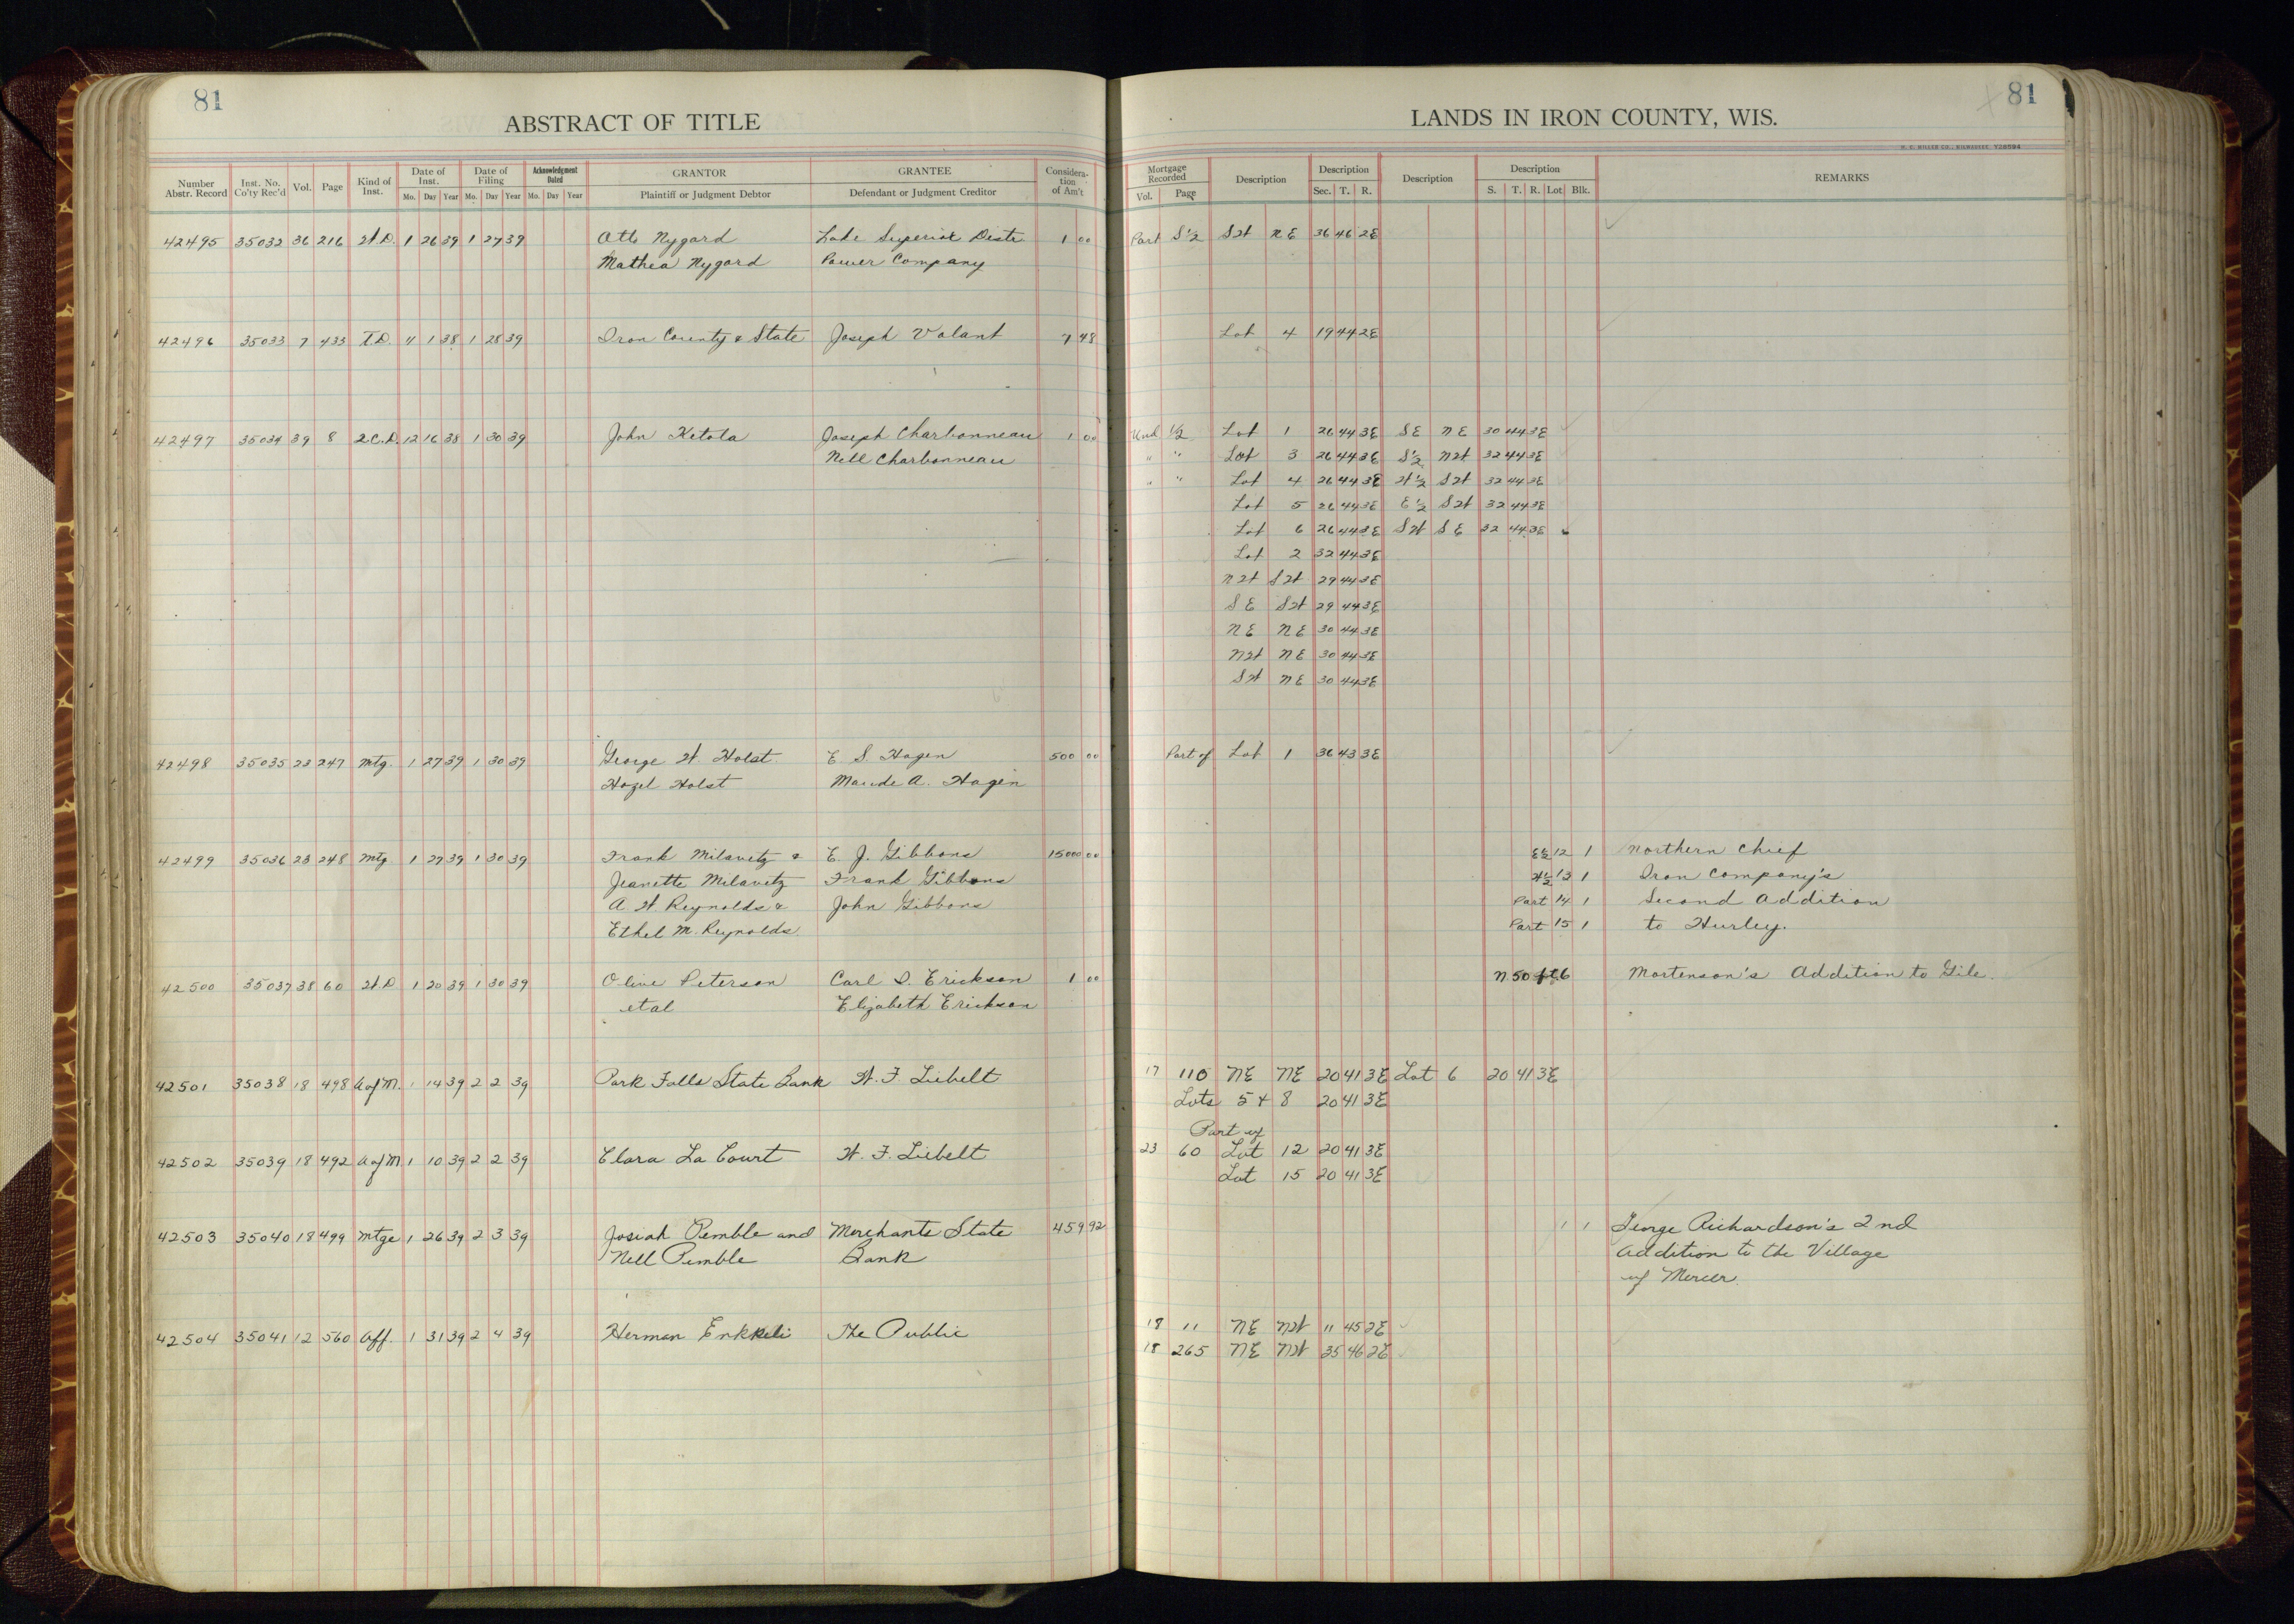 81
ABSTRACT OF TITLE
Number Abstr. Record Inst. No. Co'ty Rec'd Vol. Page Kind of Inst. Date of Inst. Mo. Day Year Date of Filing Mo. Day Year Acknowledgment Dated Mo. Day Year GRANTOR Plaintiff or Judgment Debtor GRANTEE Defendant or Judgment Creditor Consideration of Am't
42495 35032 36 216 W.D. 1 26 39 1 27 39 Otto Nygard Lake Superior Distr 1 00
Mathea Nygard Power Company
42496 35033 7 433 T.D. 11 1 38 1 28 39 Iron County & State Joseph Valant 7 48
42497 35034 39 8 2.C.D. 12 16 38 1 30 39 John Ketola Joseph Charbonneau 1 00
Nell Charbonneau
42498 35035 23 247 Mtg. 1 27 39 1 30 39 George W. Holst E S. Hagen 500 00
Hazel Holst Maude A. Hagen
42499 35036 23 248 Mtg 1 27 39 1 30 39 Frank Milavetz & E. J. Gibbons 15000 00
Jeanette Milavetz Frank Gibbons
A W. Reynolds & John Gibbons
Ethel M. Reynolds
42500 35037 38 60 W.D 1 20 39 1 30 39 Olive Peterson Carl D. Erickson 1 00
et al Elizabeth Erickson
42501 35038 18 498 A of M. 1 14 39 2 2 39 Park Falls State Bank W. F. Liebelt
42502 35039 18 492 A of M 1 10 39 2 2 39 Clara La Court W. F. Liebelt
42503 35040 18 499 Mtge 1 26 39 2 3 39 Josiah Pemble and Merchants State 459 92
Nell Pemble Bank
42504 35041 12 560 Aff. 1 31 39 2 4 39 Herman The Public
81
LANDS IN IRON COUNTY, WIS.
H. C. MILLER CO., MILWAUKEE
Mortgage Recorded Vol. Page Description Description Sec. T. R. Description Description S. T. R. Lot Blk. REMARKS
Part S½ SW NE 36 46 2E
Lot 4 19 44 2E
Und ½ Lot 1 26 44 3E SE NE 30 44 3E
" " Lot 3 26 44 3E S½ NW 32 44 3E
" " Lot 4 26 44 3E W½ SW 32 44 3E
Lot 5 26 44 3E E½ SW 32 44 3E
Lot 6 26 44 3E SW SE 32 44 3E
Lot 2 32 44 3E
NW SW 29 44 3E
SE SW 29 44 3E
NE NE 30 44 3E
NW NE 30 44 3E
SW NE 30 44 3E
Part of Lot 1 36 43 3E
E½ 12 1 Northern Chief
W½ 13 1 Iron Company's
Part 14 1 Second Addition
Part 15 1 to Hurley.
N 50 ft 6 Mortenson's Addition to Gile.
17 110 NE NE 20 41 3E Lot 6 20 41 3E
Lots 5 + 8 20 41 3E
Part of
23 60 Lot 12 20 41 3E
Lot 15 20 41 3E
1 1 George Richardson's 2nd
Addition to the Village
of Mercer.
18 11 NE NW 11 45 2E
18 265 NE NW 35 46 2E